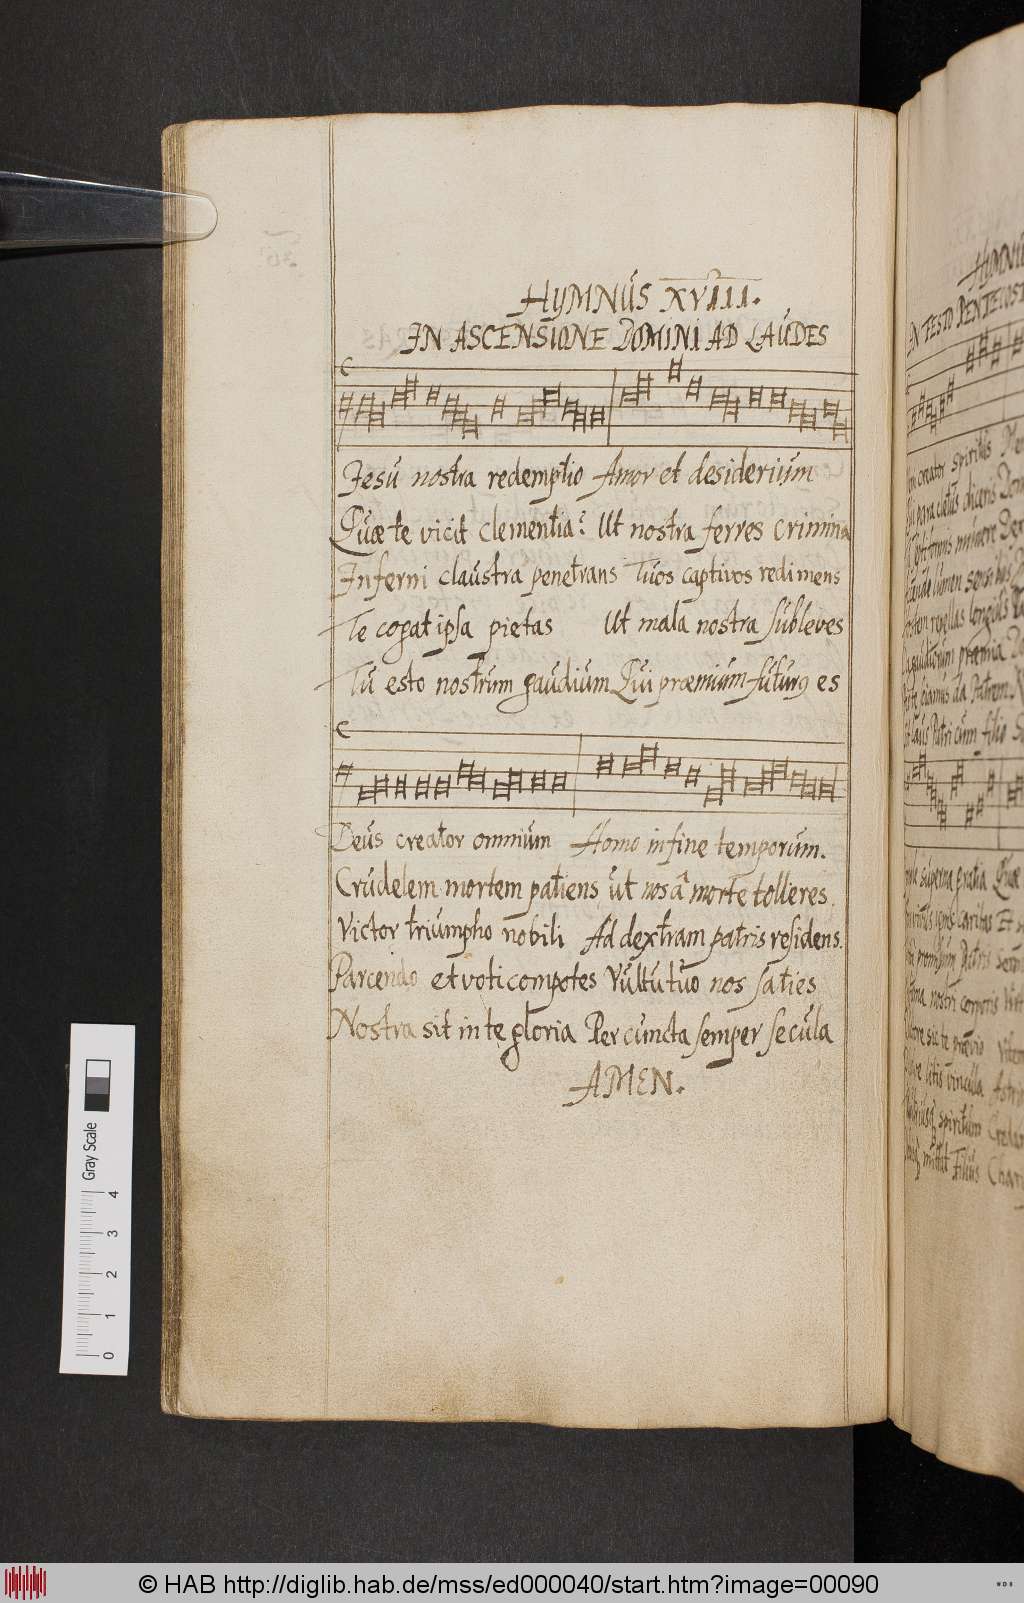 HYMNUS XVIII.
IN ASCENSIONE DOMINI AD LAUDES
Jesu nostra redemptio Amor et desiderium
Quæ te vicit clementia? Ut nostra ferres crimina
Inferni claustra penetrans Tuos captivos redimens
Te cogat ipsa pietas Ut mala nostra subleves
Tu esto nostrum gaudium Qui præmium futurꝰ es
Deus creator omnium Homo in fine temporum.
Crudelem mortem patiens, ut nos â morte tolleres.
Victor triumpho nobili Ad dextram patris residens.
Parcendo et voti compotes Vultu tuo nos saties
Nostra sit in te gloria Per cuncta semper secula
AMEN.
IN FESTO PENTECOST
creator spiritus
Gray Scale
4
3
2
1
0
© HAB http://diglib.hab.de/mss/ed000040/start.htm?image=00090